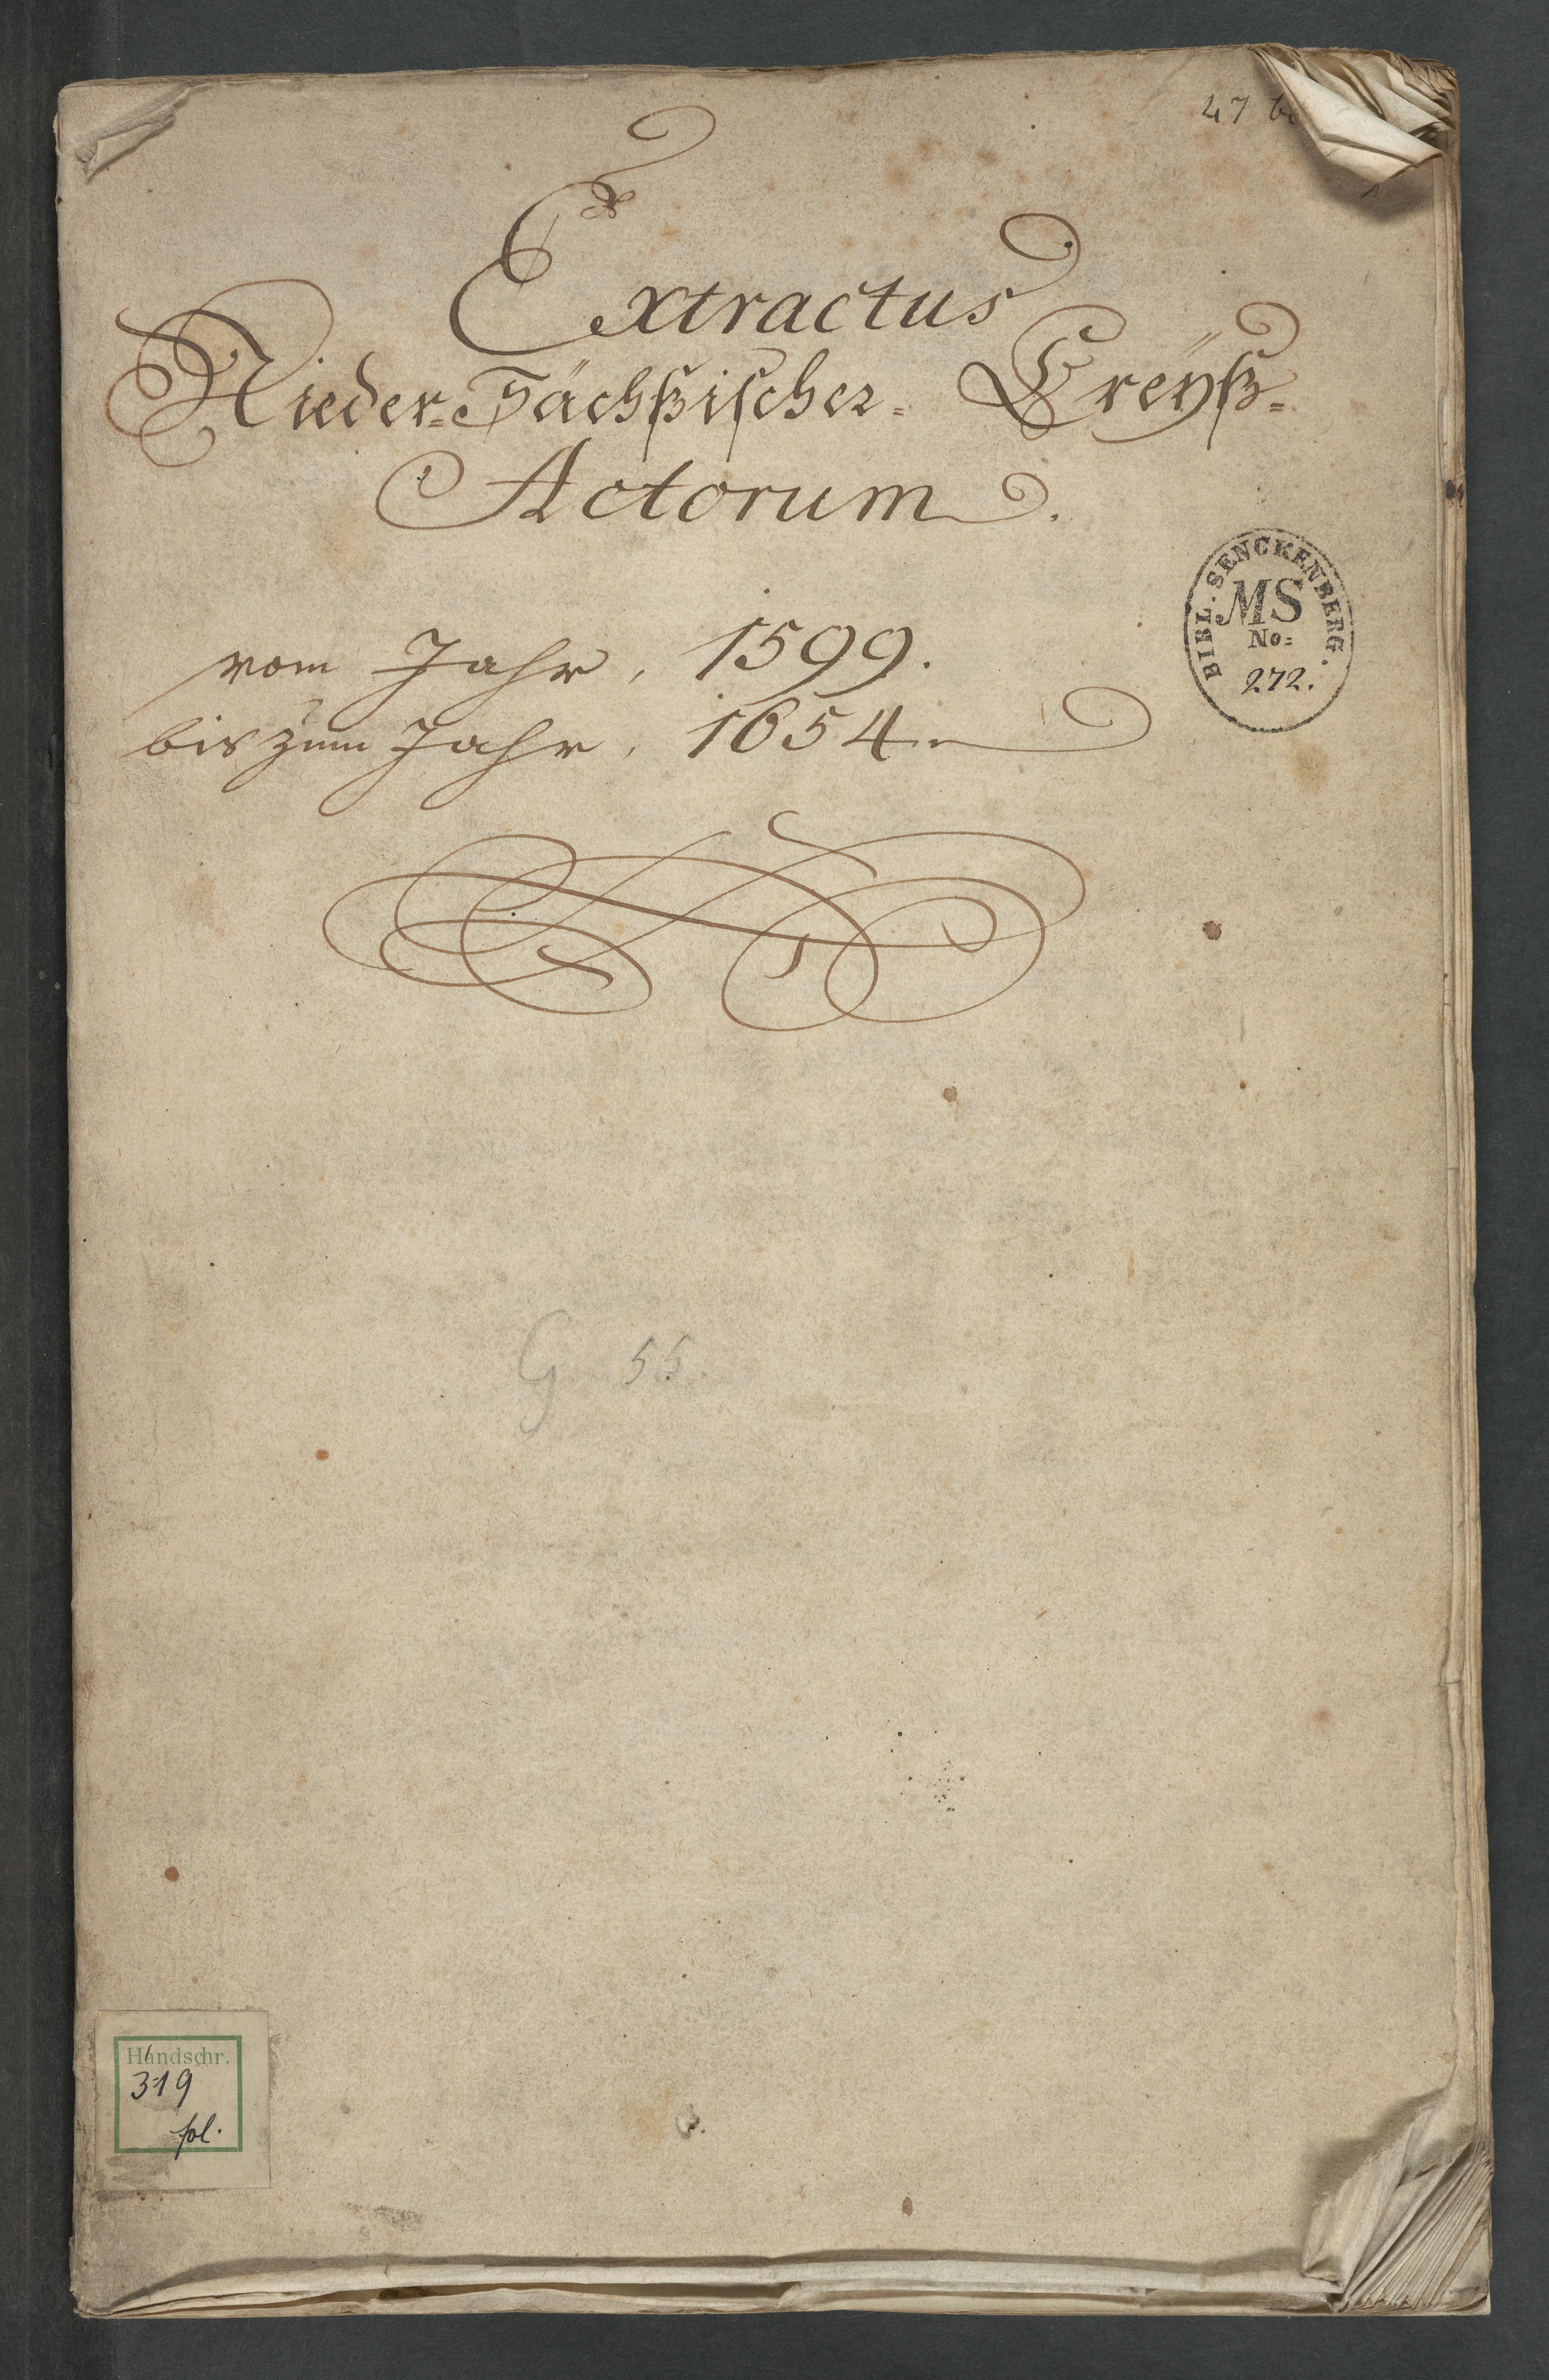 47
Extractus
Nieder-Sächßischer- Creÿß-
Actorum.
vom Jahr, 1599.
bis zum Jahr, 1654.
BIBL. SENCKENBERG.
MS
No:
272.
G 55.
Handschr.
319
fol.